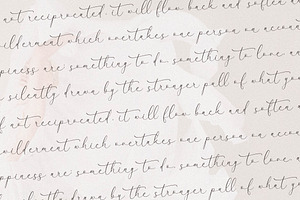 not reciprocated, it will flow back and soften a
wilderment which overtakes one person on accou
ppiness are something to do something to love a
silently drawn by the stronger pull of what yo
f not reciprocated, it will flow back and soften
wilderment which overtakes one person on accou
ppiness are something to do something to love a
silently drawn by the stronger pull of what yo